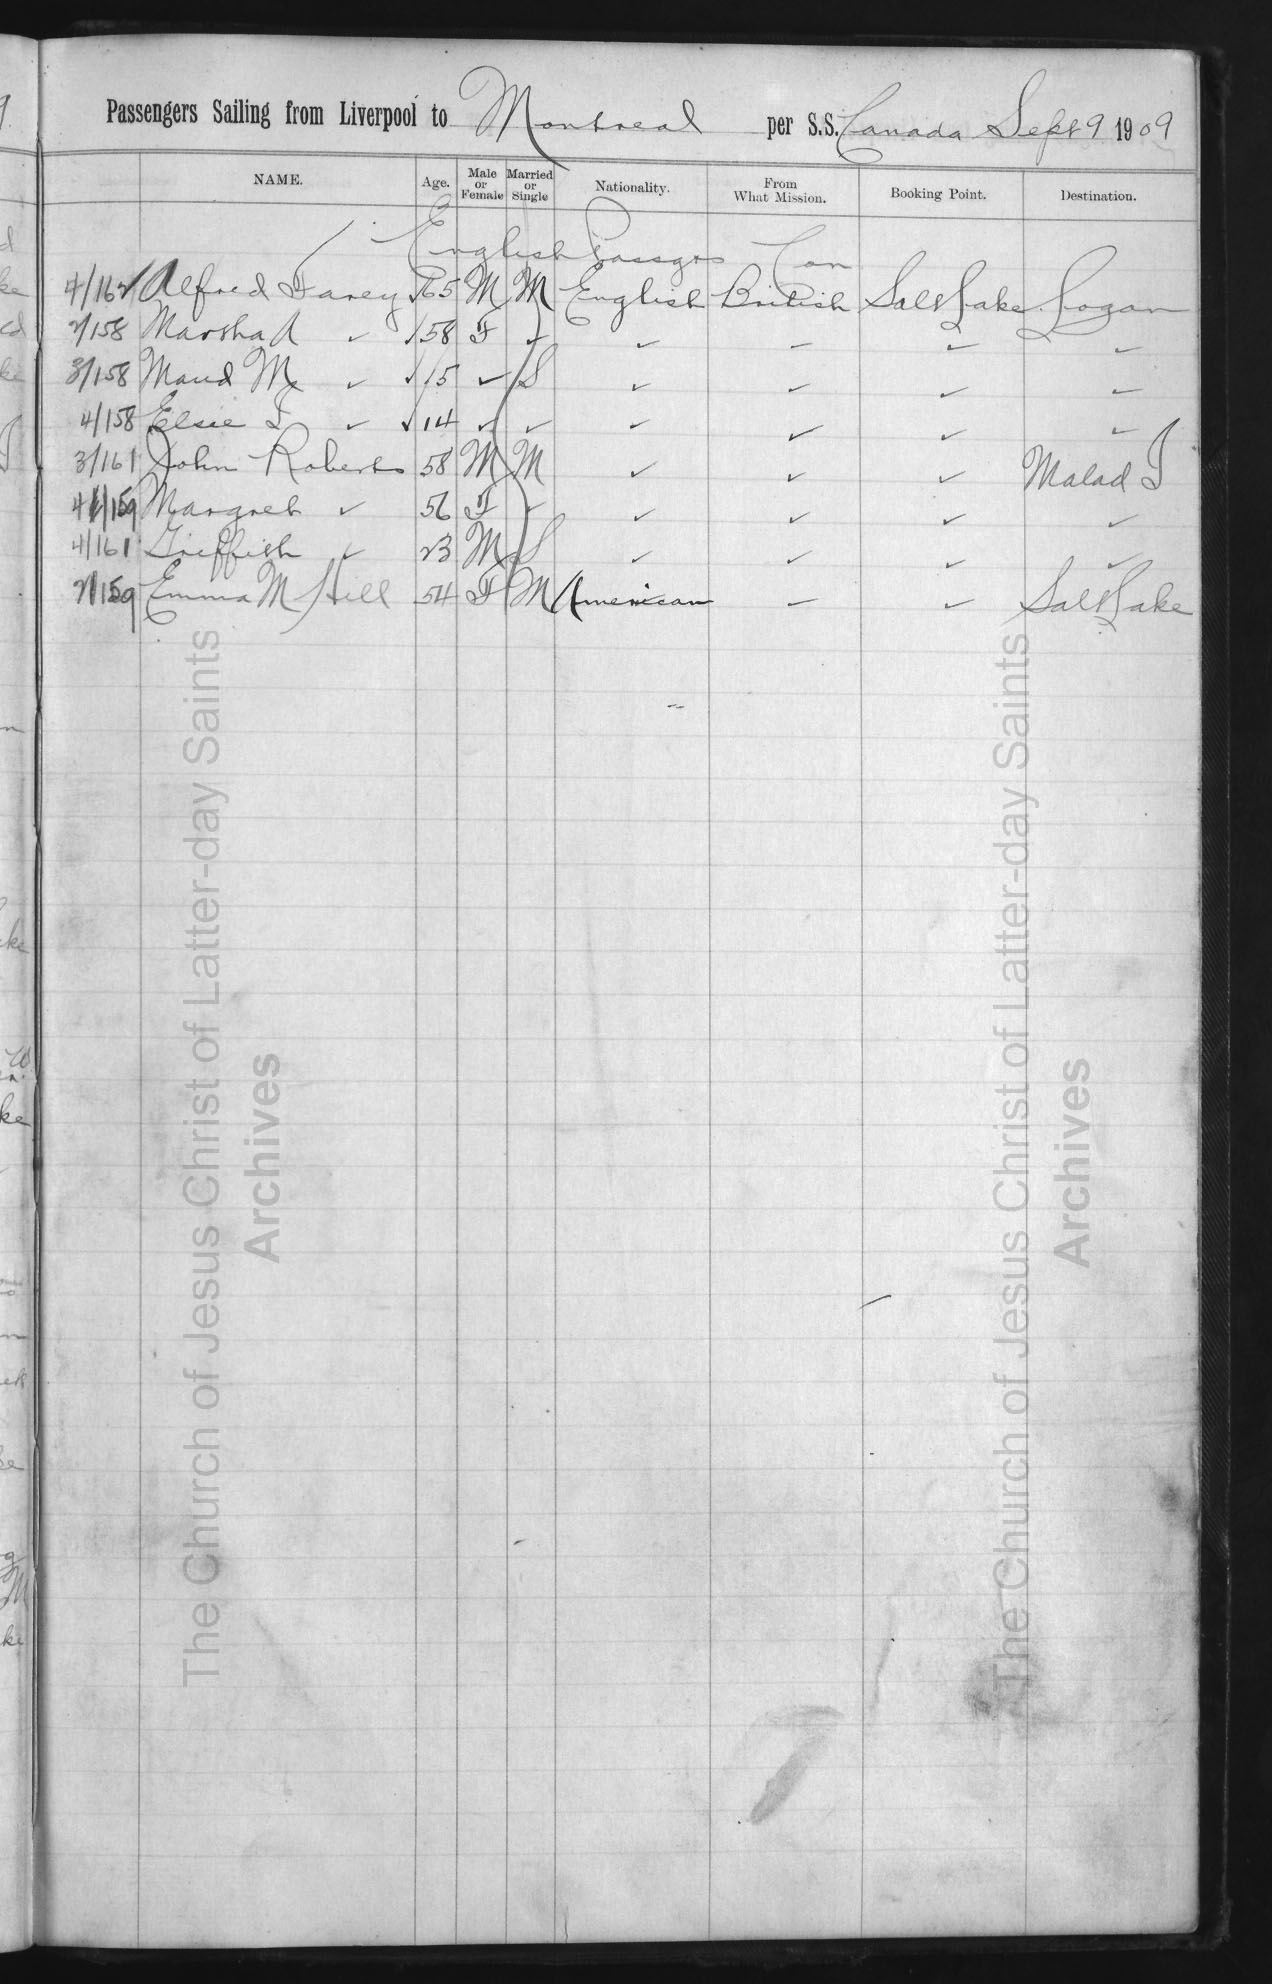 Passengers Sailing from Liverpool to Montreal per S.S. Canada Sept 9 1909
NAME. Age. Male or Female Married or Single Nationality. From What Mission. Booking Point. Destination.
English Passgrs Con
4/162 Alfred Farey 65 M M English British Salt Lake Logan
2/158 Martha A ✓ 58 F ✓ ✓ ✓ ✓ ✓
3/158 Maud M ✓ 15 ✓ S ✓ ✓ ✓ ✓
4/158 Elsie F ✓ 14 ✓ ✓ ✓ ✓ ✓ ✓
3/161 John Roberts 58 M M ✓ ✓ ✓ Malad I
4/159 Margret ✓ 56 F ✓ ✓ ✓ ✓ ✓
4/161 Griffith ✓ 23 M S ✓ ✓ ✓ ✓
2/159 Emma M Hill 54 F M American ✓ ✓ Salt Lake
The Church of Jesus Christ of Latter-day Saints
Archives
The Church of Jesus Christ of Latter-day Saints
Archives